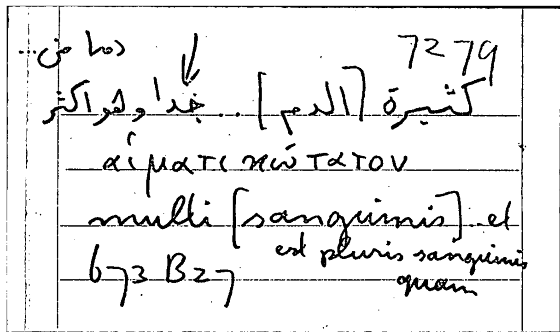 7279
كثيرة [الدم] .. جدا وهو اكثر
دما من ...
αἱματικώτατον
multi [sanguinis] .. et
est pluris sanguinis
quam
673 B27